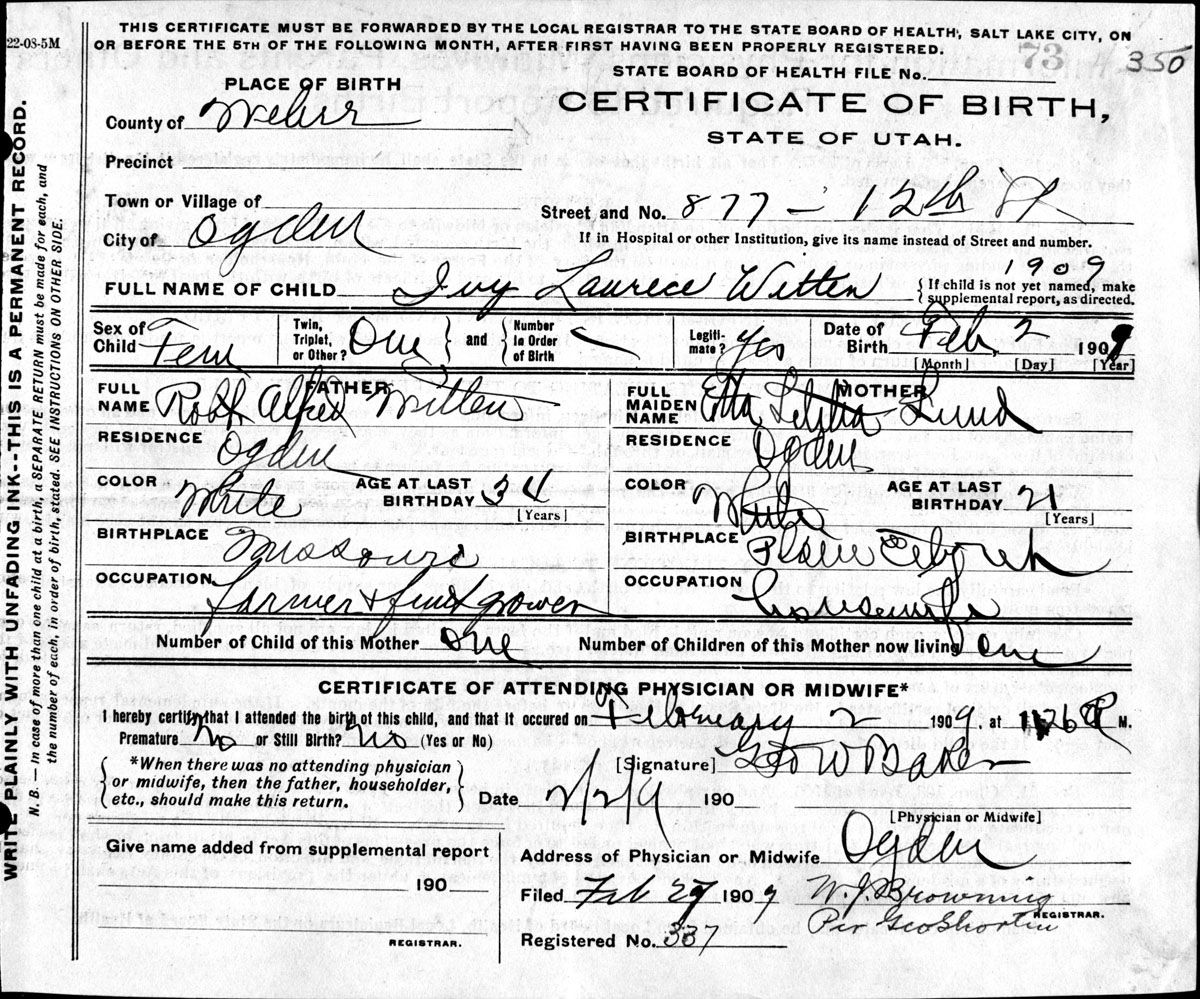 THIS CERTIFICATE MUST BE FORWARDED BY THE LOCAL REGISTRAR TO THE STATE BOARD OF HEALTH, SALT LAKE CITY, ON
OR BEFORE THE 5TH OF THE FOLLOWING MONTH, AFTER FIRST HAVING BEEN PROPERLY REGISTERED.
22-08-5M
73
350
STATE BOARD OF HEALTH FILE No.
PLACE OF BIRTH
CERTIFICATE OF BIRTH,
STATE OF UTAH.
County of Weber
Precinct
Town or Village of
City of Ogden
Street and No. 877 - 12th St
If in Hospital or other Institution, give its name instead of Street and number.
1909
FULL NAME OF CHILD Ivy Laurece Witten
{ If child is not yet named, make
supplemental report, as directed.
Sex of Child Fem
Twin, Triplet, or Other? One } and { Number in Order of Birth
Legitimate? Yes
Date of Birth Feb, 2 1909
[Month] [Day] [Year]
FATHER
FULL NAME Robt Alfred Witten
RESIDENCE Ogden
COLOR White AGE AT LAST BIRTHDAY 34
[Years]
BIRTHPLACE Missouri
OCCUPATION farmer & fruit grower
MOTHER
FULL MAIDEN NAME Etta Letitia Lund
RESIDENCE Ogden
COLOR White AGE AT LAST BIRTHDAY 21
[Years]
BIRTHPLACE Plain City
OCCUPATION Housewife
Number of Child of this Mother one Number of Children of this Mother now living one
CERTIFICATE OF ATTENDING PHYSICIAN OR MIDWIFE*
I hereby certify that I attended the birth of this child, and that it occured on February 2 1909 at P M.
Premature No or Still Birth? No (Yes or No)
*When there was no attending physician
or midwife, then the father, householder,
etc., should make this return.
[Signature] Geo W Baker
Date 2/2/9 190
[Physician or Midwife]
Give name added from supplemental report
190
REGISTRAR.
Address of Physician or Midwife Ogden
Filed Feb 27 1909 W. J. Browning
REGISTRAR.
Per Geo Shorten
Registered No. 337
WRITE PLAINLY WITH UNFADING INK--THIS IS A PERMANENT RECORD.
N. B.—In case of more than one child at a birth, a SEPARATE RETURN must be made for each, and
the number of each, in order of birth, stated. SEE INSTRUCTIONS ON OTHER SIDE.